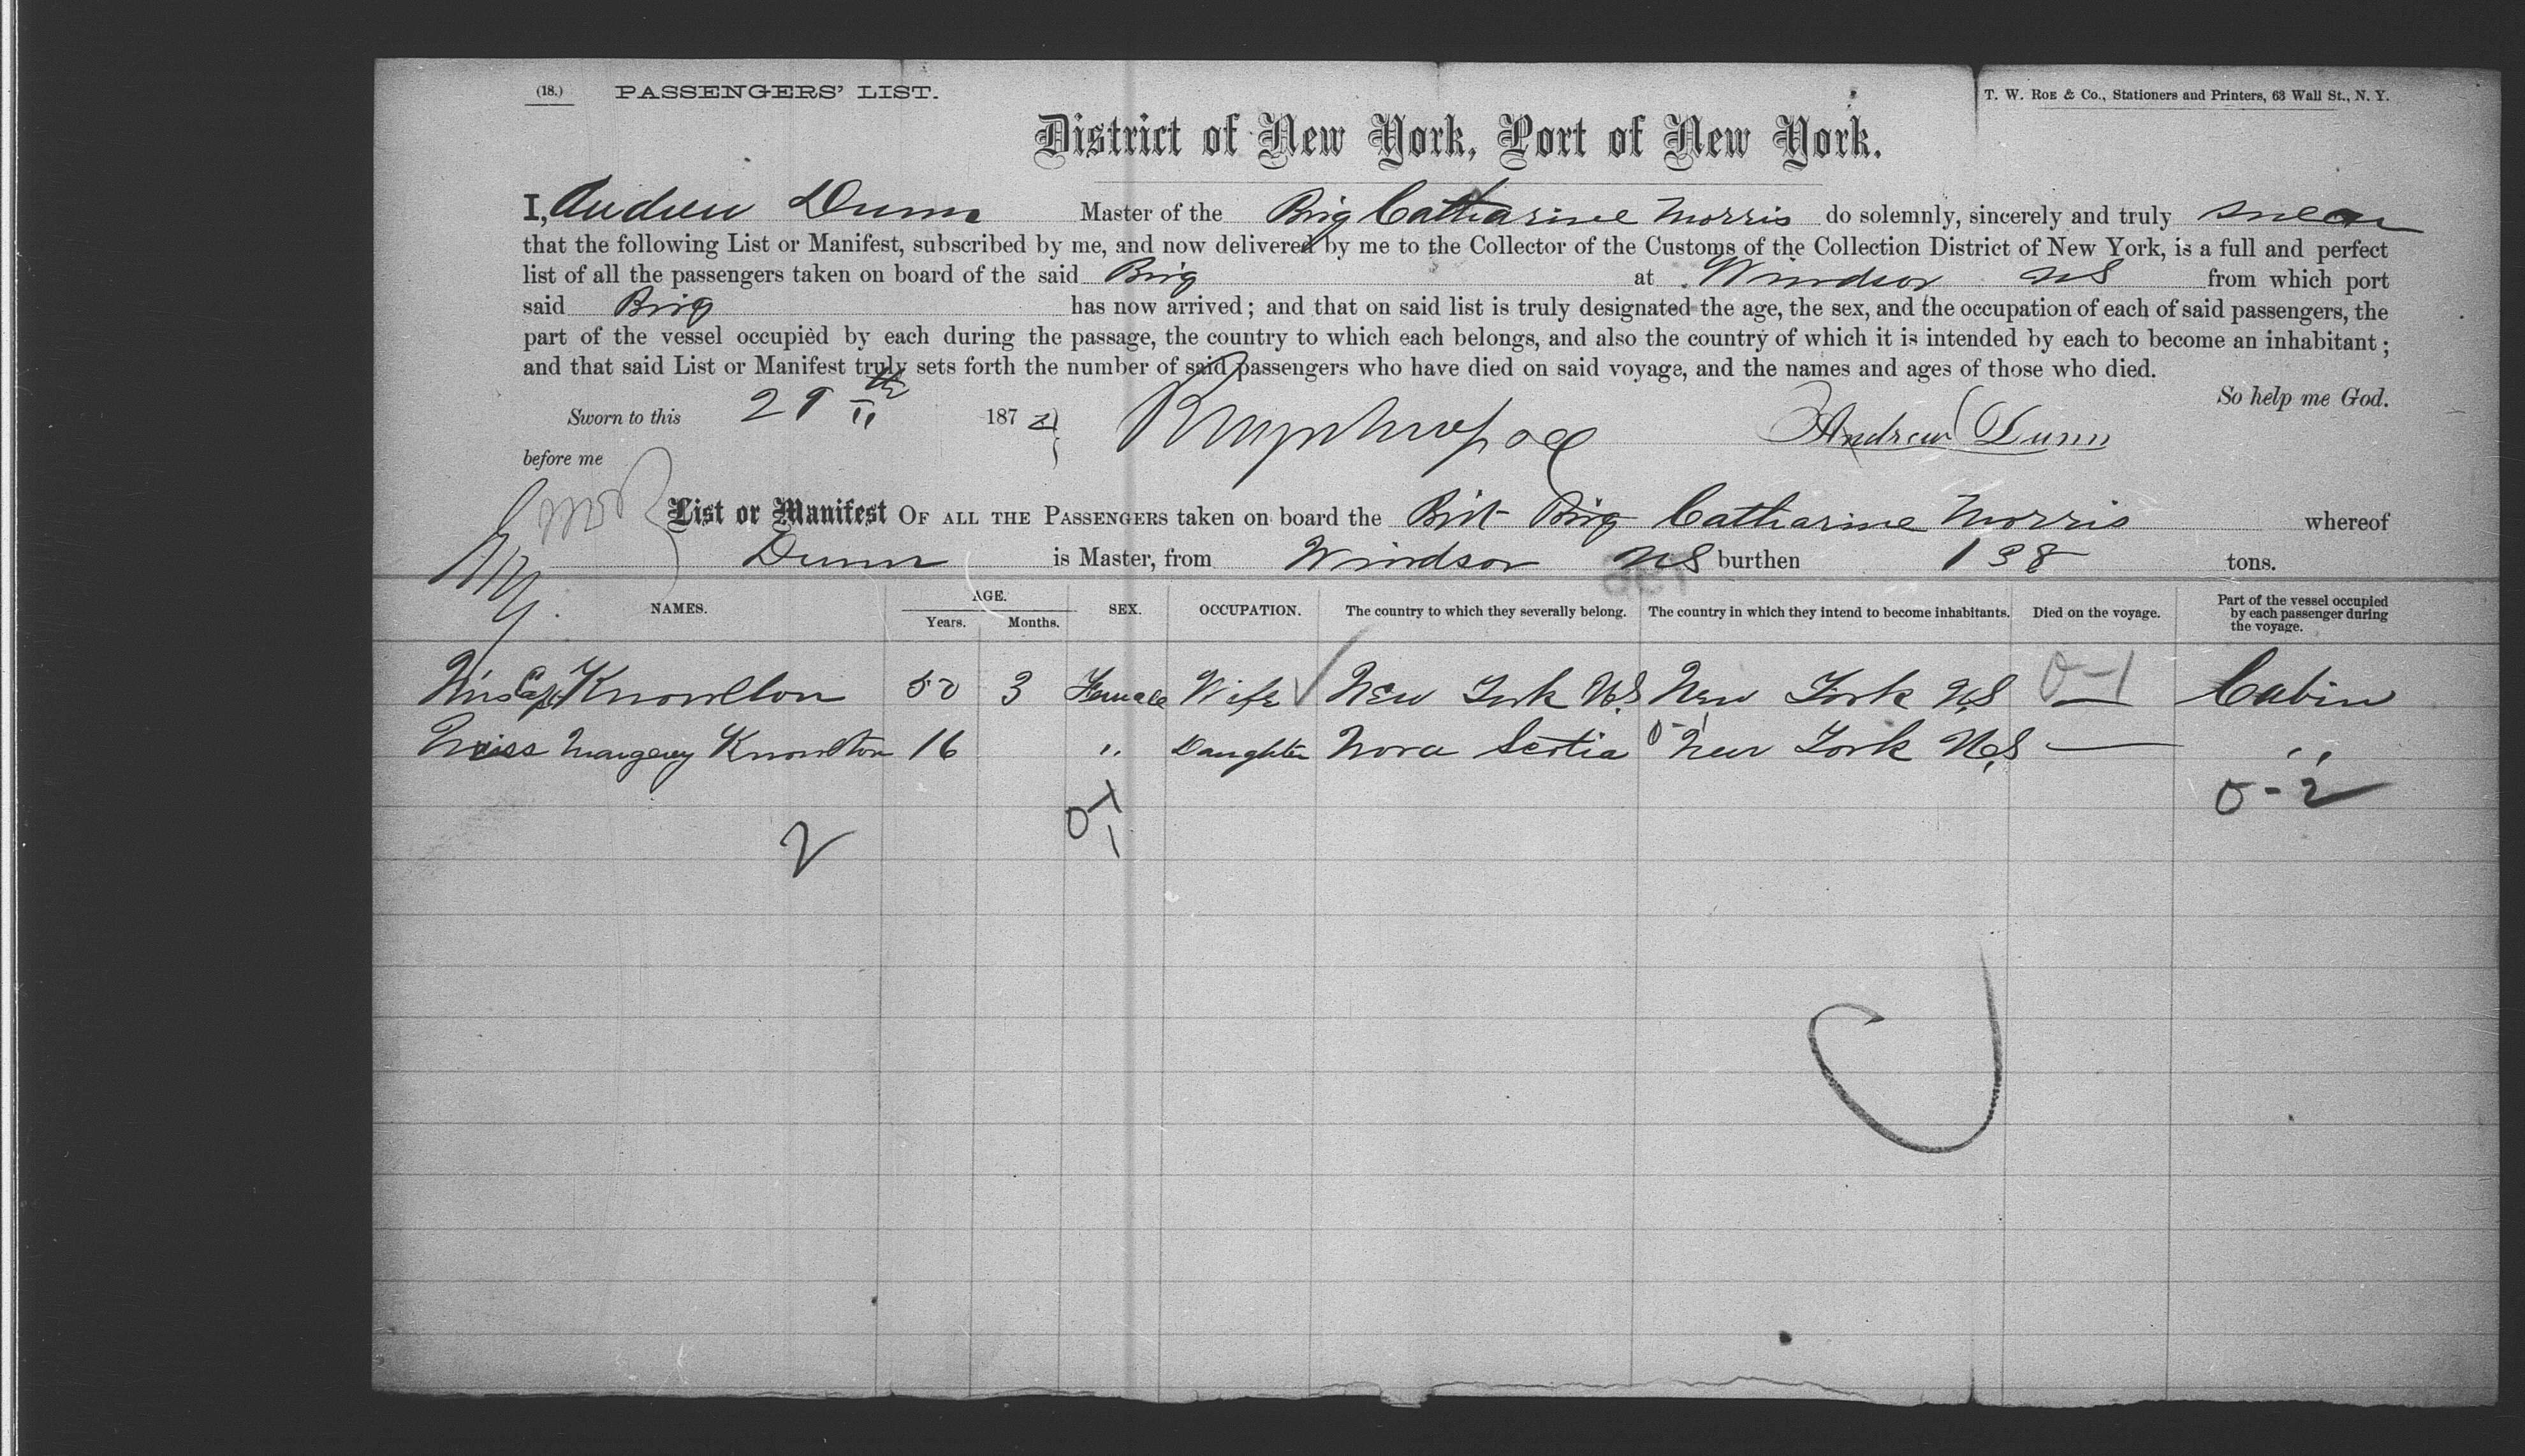 (18.) PASSENGERS' LIST.
T. W. ROE & Co., Stationers and Printers, 63 Wall St., N. Y.
District of New York, Port of New York.
I, Andrew Dunn Master of the Brig Catharine Morris do solemnly, sincerely and truly swear
that the following List or Manifest, subscribed by me, and now delivered by me to the Collector of the Customs of the Collection District of New York, is a full and perfect
list of all the passengers taken on board of the said Brig at Windsor NS from which port
said Brig has now arrived; and that on said list is truly designated the age, the sex, and the occupation of each of said passengers, the
part of the vessel occupied by each during the passage, the country to which each belongs, and also the country of which it is intended by each to become an inhabitant;
and that said List or Manifest truly sets forth the number of said passengers who have died on said voyage, and the names and ages of those who died.
So help me God.
Sworn to this 29th 187
Andrew Dunn
before me
List or Manifest OF ALL THE PASSENGERS taken on board the Brit Brig Catharine Morris whereof
Dunn is Master, from Windsor NS burthen 138 tons.
NAMES. AGE. Years. Months. SEX. OCCUPATION. The country to which they severally belong. The country in which they intend to become inhabitants. Died on the voyage. Part of the vessel occupied by each passenger during the voyage.
Mrs Cap Knowlton 50 3 Female Wife New York US New York US 0-1 Cabin
Miss Margery Knowlton 16 " Daughter Nova Scotia 0-1 New York US — "
0-2
2